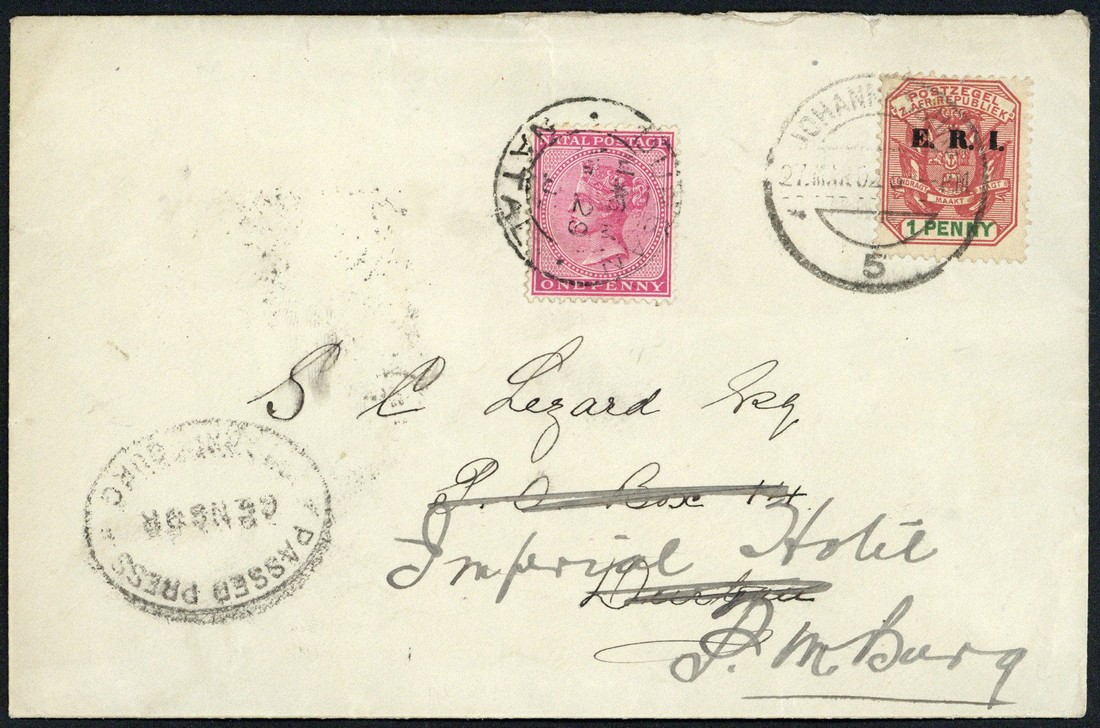 POSTZEGEL
Z. AFR. REPUBLIEK
E. R. I.
EENDRAGT MAAKT MAGT
1 PENNY
27. MAR 02
5
NATAL POSTAGE
ONE PENNY
NATAL
29
S C Lezard Esq
P. O Box 14.
Imperial Hotel
Durban
P. M. Burg
PASSED PRESS
CENSOR